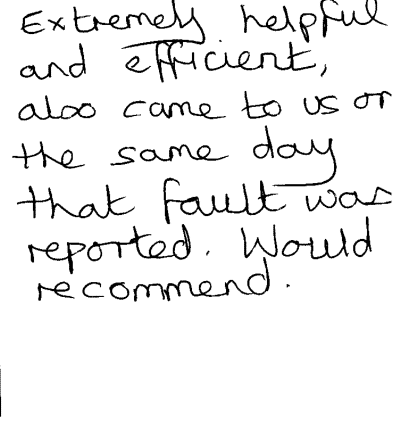 Extremely helpful
and efficient,
also came to us or
the same day
that fault was
reported. Would
recommend.